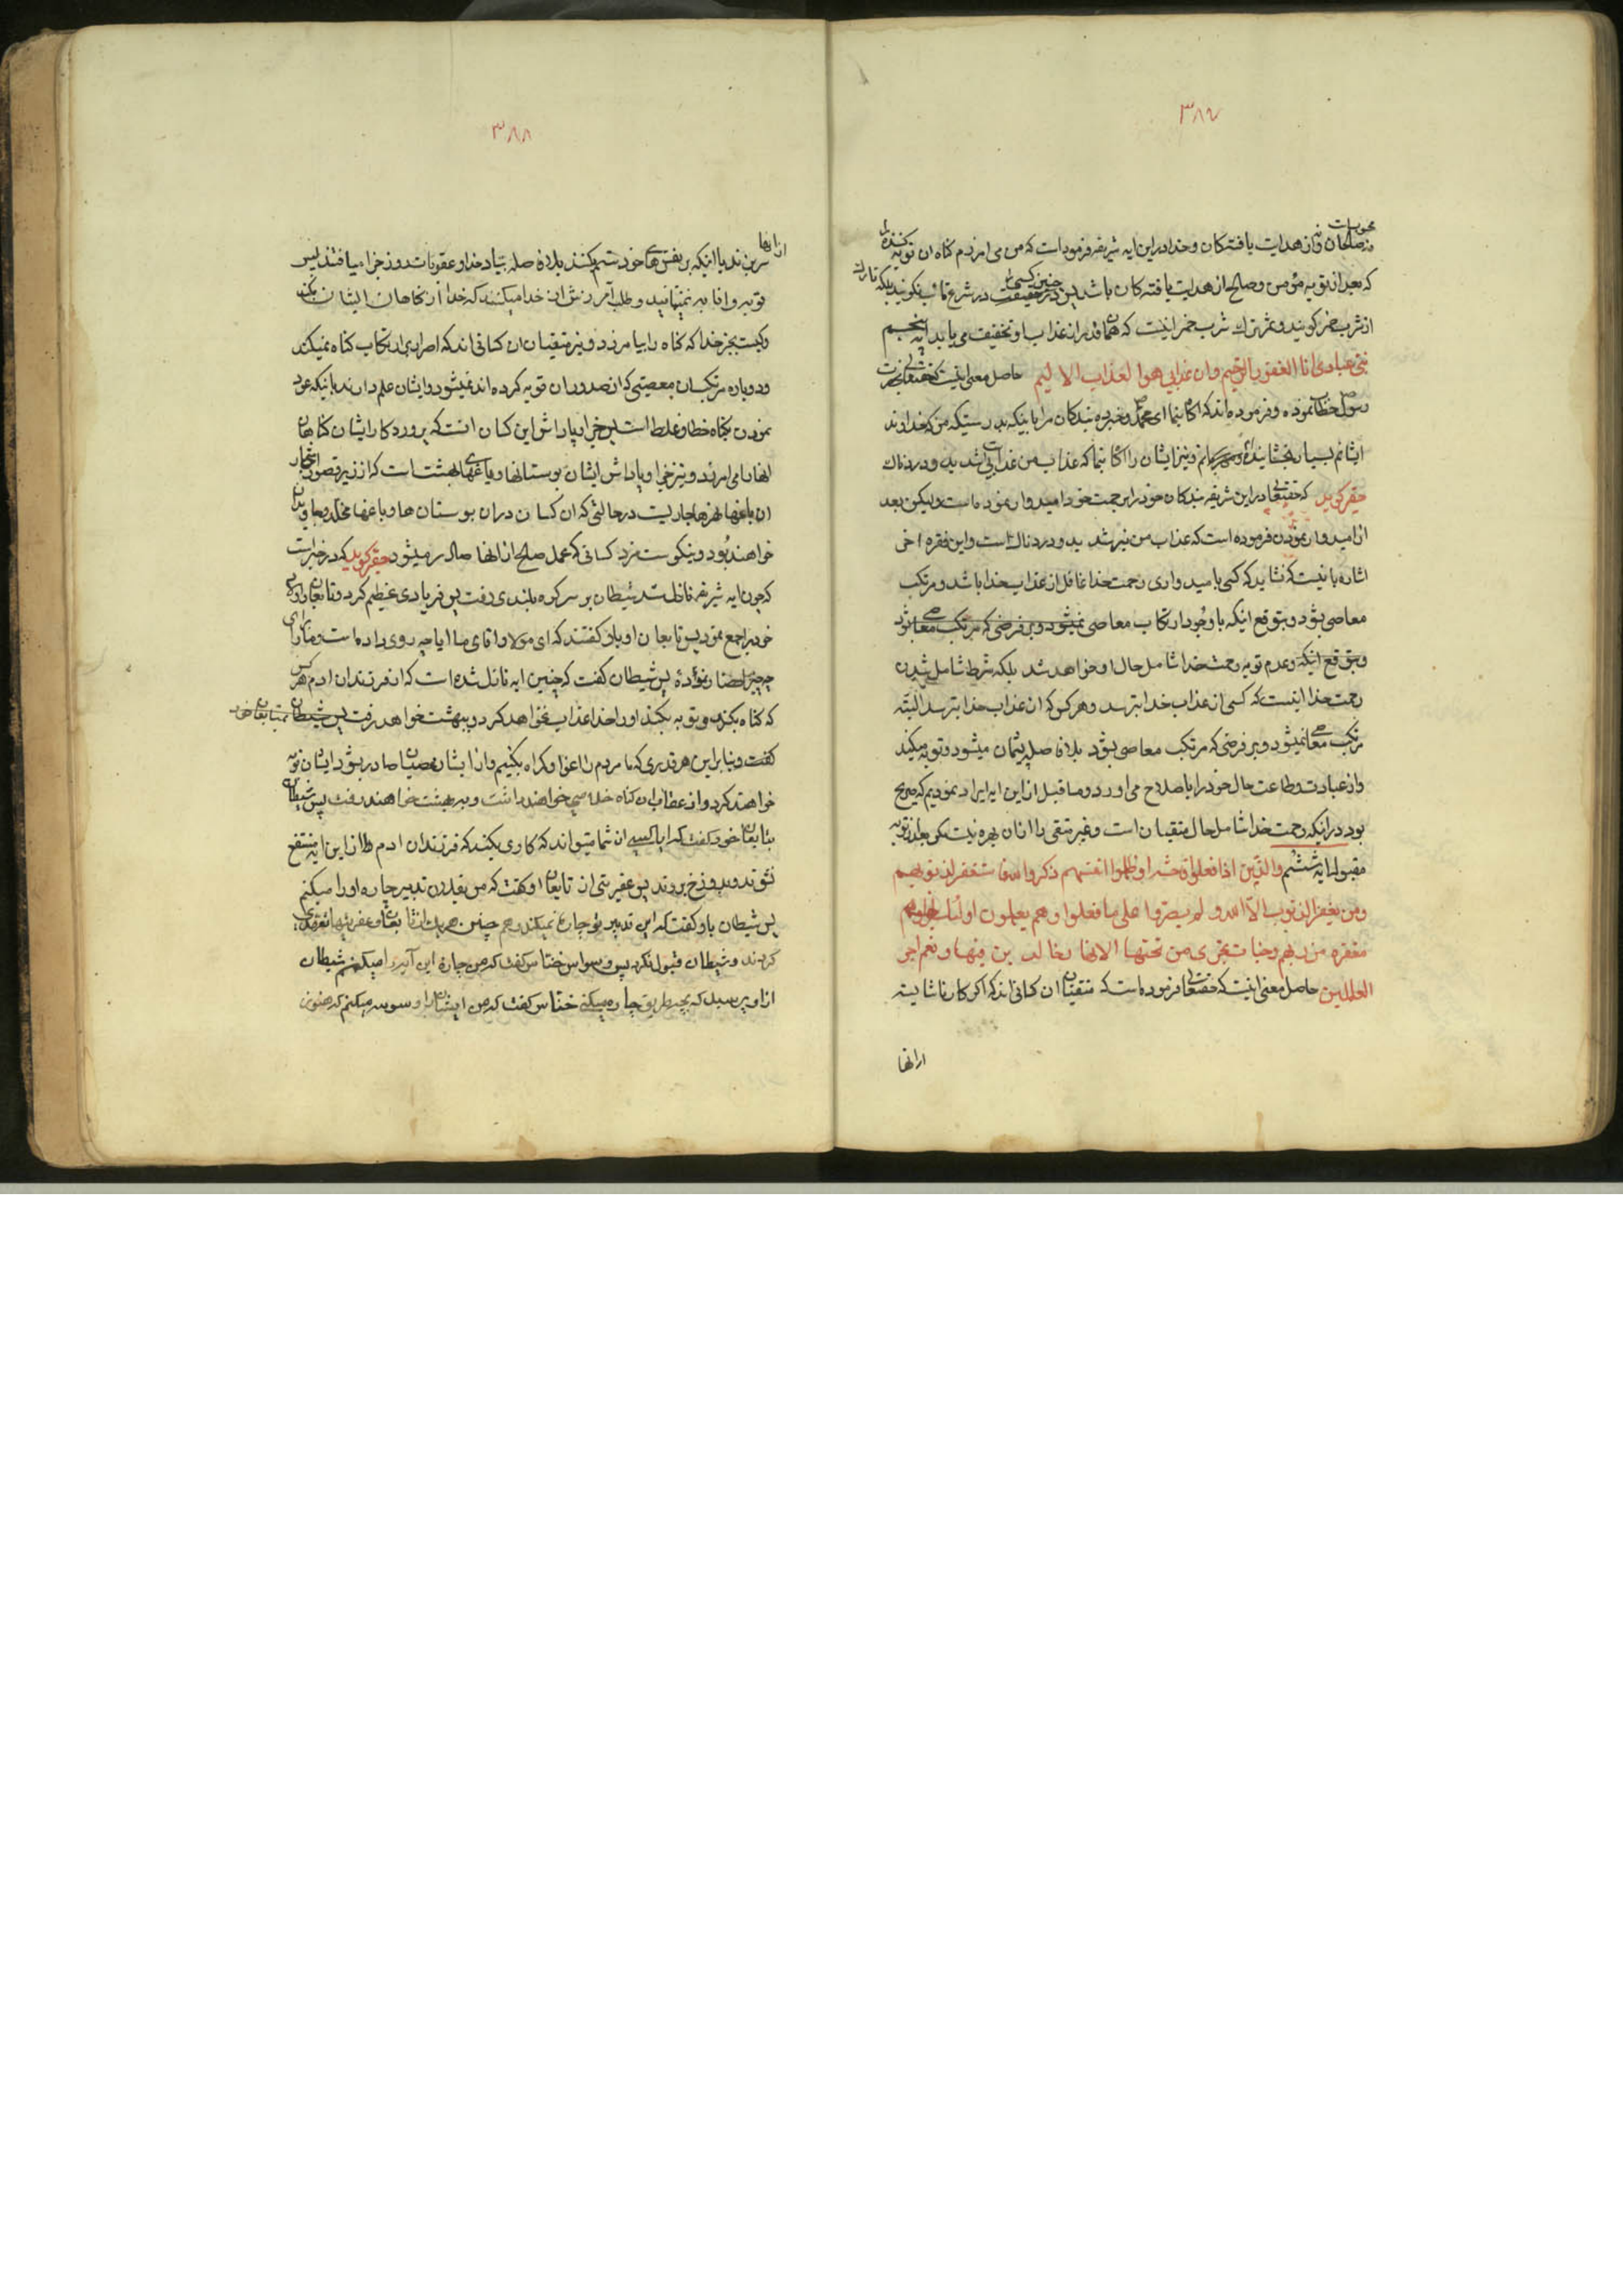 ۳۸۷
و صالحان و از هدایت یافتکان و خدا در این ایه شریفه فرموده است که من می امرزم کناه ان توبه کننده را
که بعد از توبه مؤمن و صالح و از هدایت یافته کان باشد پس در حقیقت چنین کسی را در شرع تائب نکویند بلکه تارک
از شرب خمر کویند و ثمر ترک شرب خمر اینست که همان قدر از عذاب او تخفیف می یابد ایه پنجم
نبئ عبادی انا الغفور الرحیم وان عذابی هو العذاب الالیم حاصل معنی اینست که حقتعالی بحضرت
رسول خطاب نموده و فرموده اند که اکاه نما ای محمد و خبر ده بندکان مرا باینکه بدرستیکه من که خداوند
ایشانم بسیار بخشاینده و مهربانم و نیز ایشان را اکاه نما که عذاب من عذابی است شدید و دردناک
حقیر کوید که حقتعالی در این شریفه بندکان خود را برحمت خود امیدوار نموده است ولیکن بعد
از امیدوار نمودن فرموده است که عذاب من نیز شدید و دردناک است و این فقره اخر
اشاره باینست که نشاید که کسی بامیدواری رحمت خدا غافل از عذاب خدا باشد و مرتکب
معاصی بشود و بتوقع اینکه با وجود ارتکاب معاصی نمیشود و بر فرضی که مرتکب معاصی شود
و بتوقع اینکه و عدم توبه رحمت خدا شامل حال او خواهد شد بلکه شرط شامل شدن
رحمت خدا اینست که کسی از عذاب خدا بترسد و هر کس که از عذاب خدا بترسد البته
مرتکب معاصی نمیشود و بر فرضی که مرتکب معاصی بشود بلافاصله پشیمان میشود و توبه میکند
و از عبادت و طاعت حال خود را باصلاح می اورد و ما قبل از این ایه ایراد نمودیم که صریح
بود در اینکه رحمت خدا شامل حال متقیان است و غیر متقی را از ان بهره نیست مکر بعد از توبه
مقبوله ایه ششم والذین اذا فعلوا فاحشه او ظلموا انفسهم ذکروا الله فاستغفر لذنوبهم
ومن یغفر الذنوب الا الله ولم یصروا علی ما فعلوا وهم یعلمون اولئک جزاوهم
مغفره من ربهم وجنات تجری من تحتها الانهار خالدین فیها ونعم اجر
العاملین حاصل معنی اینست که حقتعالی فرموده است که متقیان ان کسانی اند که اکر کار ناشایسته
از انها
۳۸۸
از انها
سر بزند یا اینکه بر نفس های خود ستم بکنند بلافاصله بیاد خدا و عقوبات روز جزا میافتند پس
توبه و انابه مینمایند و طلب آمرزش از خدا میکنند که خدا از کناهان ایشان بکذرد
و کیست بجز خدا که کناه را بیامرزد و نیز متقیان ان کسانی اند که اصرار در ارتکاب کناه نمیکنند
و دوباره مرتکب ان معصیتی که از صدور ان توبه کرده اند نمیشود و ایشان علم دارند باینکه عود
نمودن بکناه خطا و غلط است پس جزا و پاداش این کسان انست که پروردکار ایشان کناهان
انها را می امرزد و نیز جزا و پاداش ایشان بوستانها و باغهای بهشت است که از زیر قصور و اشجار
ان باغها نهرها جاریست در حالتی که ان کسان در ان بوستان ها و باغها مخلد و جاویدان
خواهند بود و نیکوست مزد کسانی که عمل صالح از انها صادر میشود حقیر کوید که در خبر است
که چون ایه شریفه نازل شد شیطان بر سر کوه بلندی رفت پس فریادی عظیم کرد و تابعان و اولاد
خود را جمع نمود پس تابعان او باو کفتند که ای مولا و اقای ما ایا چه روی داده است و ما را برای
چه چیز احضار نمودۀ پس شیطان کفت که چنین ایه نازل شده است که از فرزندان ادم هر کس
که کناه بکند و توبه بکند او را خدا عذاب نخواهد کرد و ببهشت خواهد رفت پس شیطان بتابعان خود
کفت و بنابراین هر قدری که ما مردم را اغوا و کمراه بکنیم و از ایشان عصیان صادر بشود ایشان توبه
خواهند کرد و از عقاب ان کناه خلاصی خواهند داشت و ببهشت خواهند رفت پس شیطان
بتابعان خود کفت که ایا کسی از شما میتواند که کاری بکند که فرزندان ادم را از این ایه منتفع
نشوند و بدوزخ بروند پس عفریتی از تابعان او کفت که من بفلان تدبیر چاره او را میکنم
پس شیطان باو کفت که این تدبیر تو چاره نمیکند و هم چنین هر یک از تابعان و عفریتها تقریری
کردند و شیطان قبول نکرد پس وسواس خناس کفت که من چارۀ این آیه را میکنم شیطان
از او پرسید که بچه طریق چاره میکنی خناس کفت که من ایشان را وسوسه میکنم که هنوز